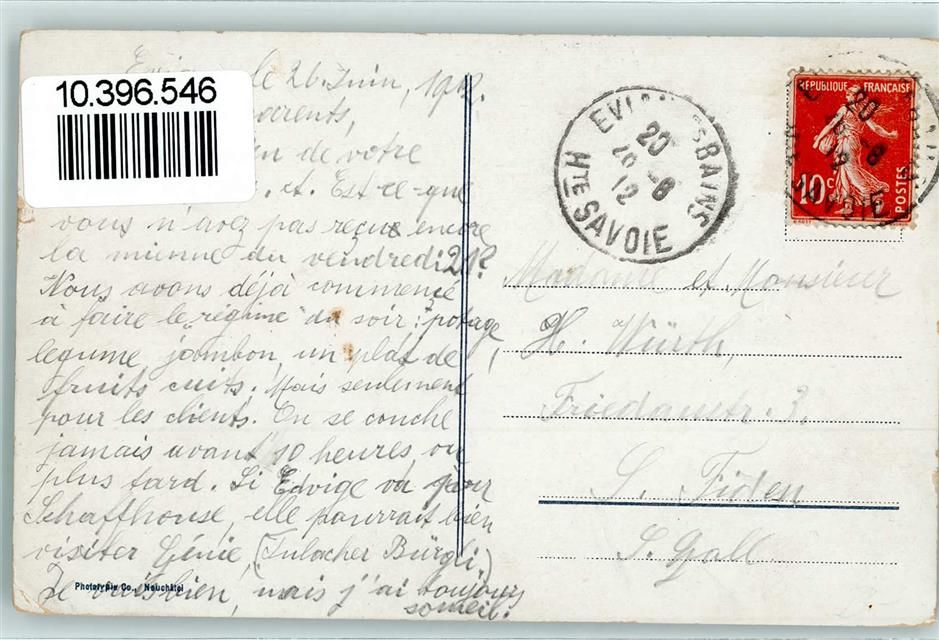 10.396.546
le 26 Juin, 1912.
parents,
de votre
et. Est-ce-que
vous n'avez pas reçue encore
la mienne du vendredi 21?
Nous avons déjà commencé
à faire le "régime" du soir: potage,
legume, jambon, un plat de
fruits cuits. Mais seulement
pour les clients. On se couche
jamais avant 10 heures ou
plus tard. Si Edvige va pour
Schaffhouse, elle pourrait bien
visiter Génie, (Bürgli.)
Je vais bien, mais j'ai toujours
someil.
Phototypie Co., Neuchâtel
EVI BAINS
20
12
HTE SAVOIE
REPUBLIQUE FRANÇAISE
10c
POSTES
Madame et Monsieur
H. Würth,
3.
S. Fiden
S. Gall